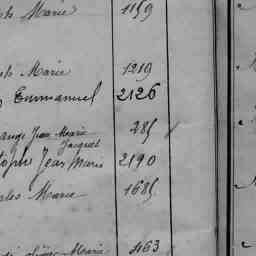 Marie 1159
Marie 1219
Emmanuel 2126
ange Jean Marie 285
Jacques
Jean Marie 2190
Marie 1685
Marie 463